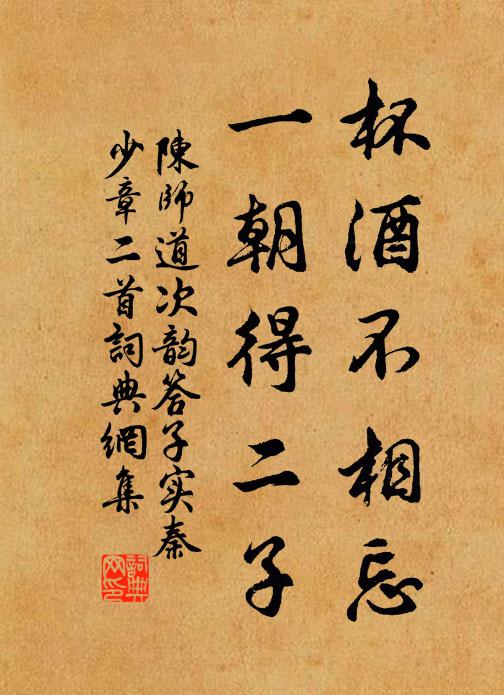 杯酒不相忘
一朝得二子
陳師道次韵答子实秦
少章二首詞典網集
詞典网印